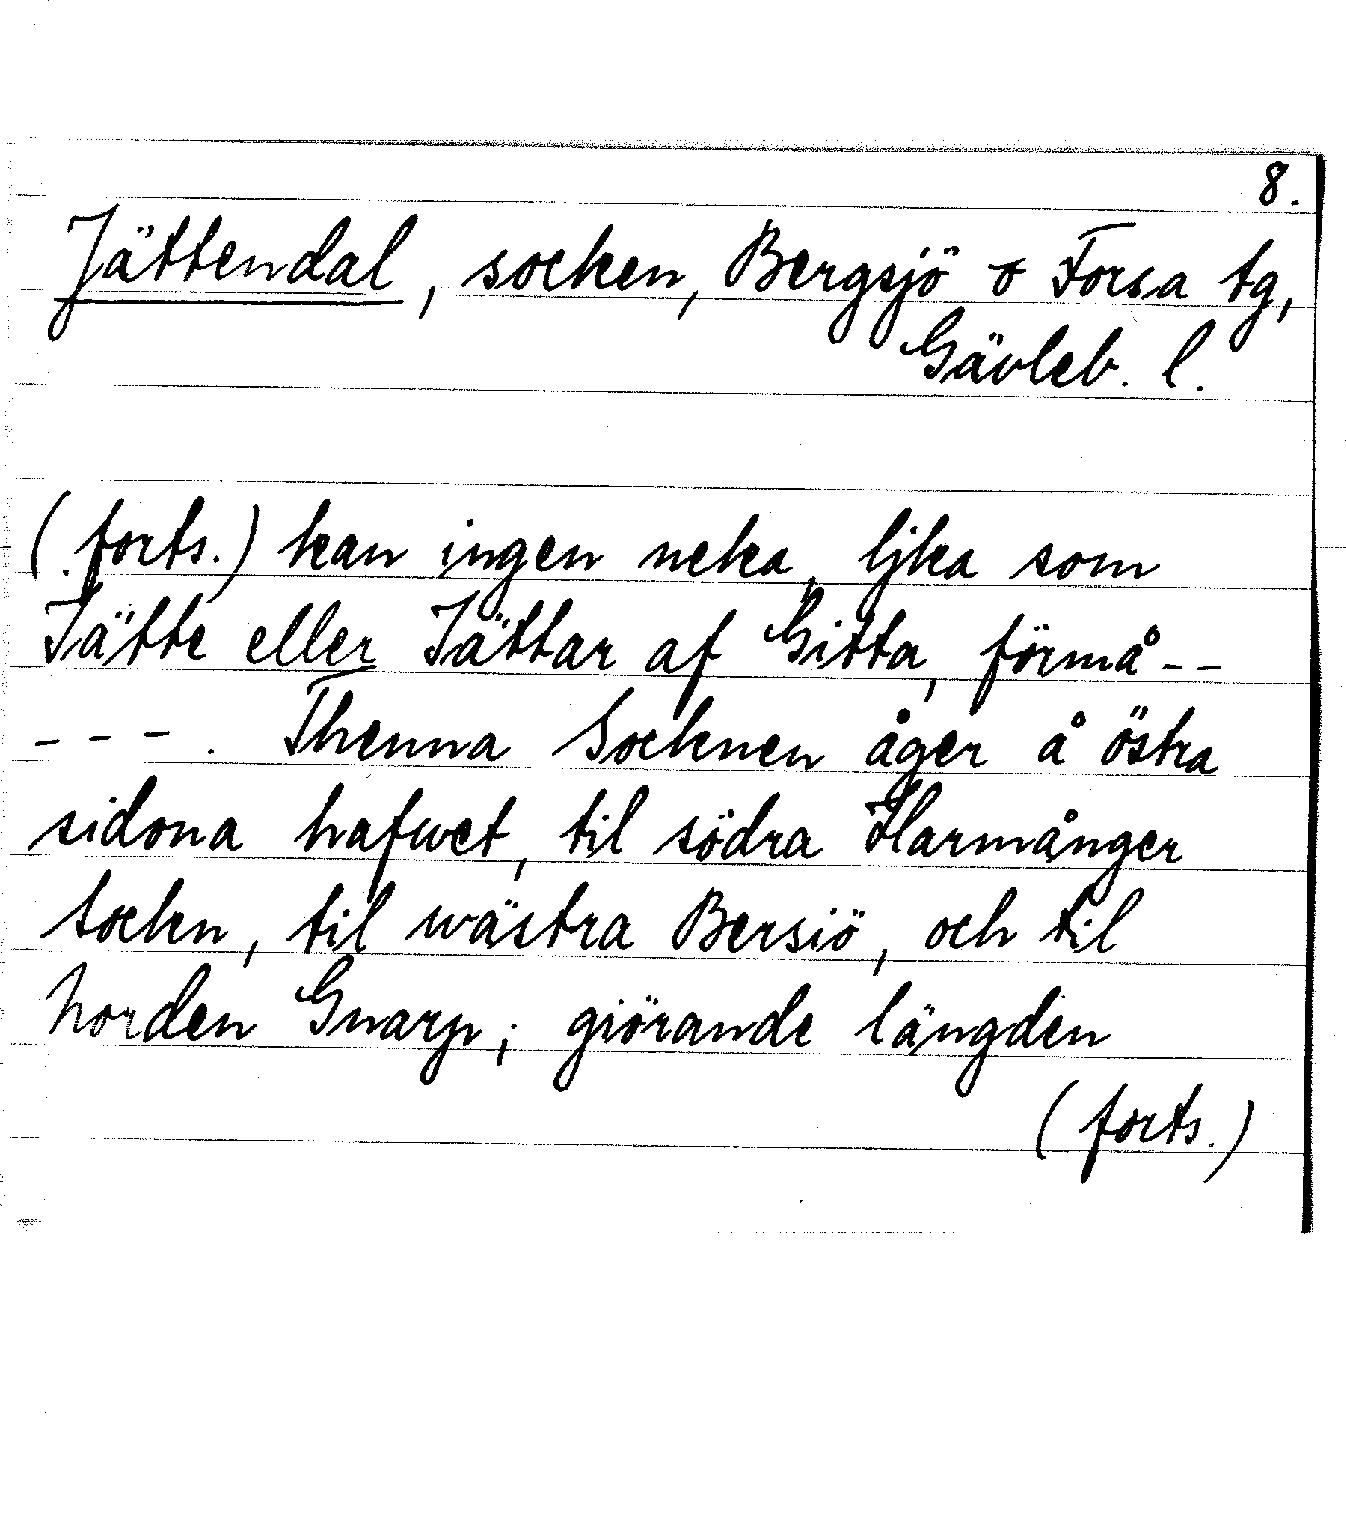 8.
Jättendal, socken, Bergsjö o Forsa tg,
Gävleb. l.
(forts.) kan ingen neka, ljka som
Jätte eller Jättar af Gitta, förmå--
---. Thenna Socknen åger å östra
sidona hafwet, til södra Harmånger
Sockn, til wästra Bersiö, och til
Norden Gnarp; giörande längden
(forts.)